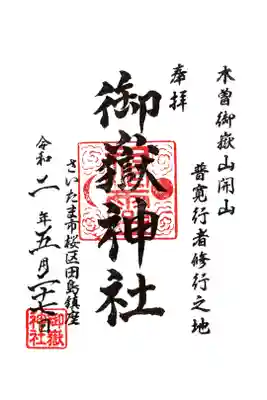 木曽御嶽山開山
普寛行者修行之地
奉拝
御嶽神社
さいたま市桜区田島鎮座
令和二年五月二十七日
御嶽神社